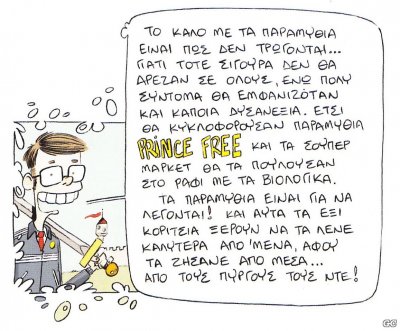 ΤΟ ΚΑΛΟ ΜΕ ΤΑ ΠΑΡΑΜΥΘΙΑ
ΕΙΝΑΙ ΠΩΣ ΔΕΝ ΤΡΩΓΟΝΤΑΙ...
ΓΙΑΤΙ ΤΟΤΕ ΣΙΓΟΥΡΑ ΔΕΝ ΘΑ
ΑΡΕΖΑΝ ΣΕ ΟΛΟΥΣ, ΕΝΩ ΠΟΛΥ
ΣΥΝΤΟΜΑ ΘΑ ΕΜΦΑΝΙΖΟΤΑΝ
ΚΑΙ ΚΑΠΟΙΑ ΔΥΣΑΝΕΞΙΑ. ΕΤΣΙ
ΘΑ ΚΥΚΛΟΦΟΡΟΥΣΑΝ ΠΑΡΑΜΥΘΙΑ
PRINCE FREE ΚΑΙ ΤΑ ΣΟΥΠΕΡ
ΜΑΡΚΕΤ ΘΑ ΤΑ ΠΟΥΛΟΥΣΑΝ
ΣΤΟ ΡΑΦΙ ΜΕ ΤΑ ΒΙΟΛΟΓΙΚΑ.
ΤΑ ΠΑΡΑΜΥΘΙΑ ΕΙΝΑΙ ΓΙΑ ΝΑ
ΛΕΓΟΝΤΑΙ! ΚΑΙ ΑΥΤΑ ΤΑ ΕΞΙ
ΚΟΡΙΤΣΙΑ ΞΕΡΟΥΝ ΝΑ ΤΑ ΛΕΝΕ
ΚΑΛΥΤΕΡΑ ΑΠΟ 'ΜΕΝΑ, ΑΦΟΥ
ΤΑ ΖΗΣΑΝΕ ΑΠΟ ΜΕΣΑ...
ΑΠΟ ΤΟΥΣ ΠΥΡΓΟΥΣ ΤΟΥΣ ΝΤΕ!
GC